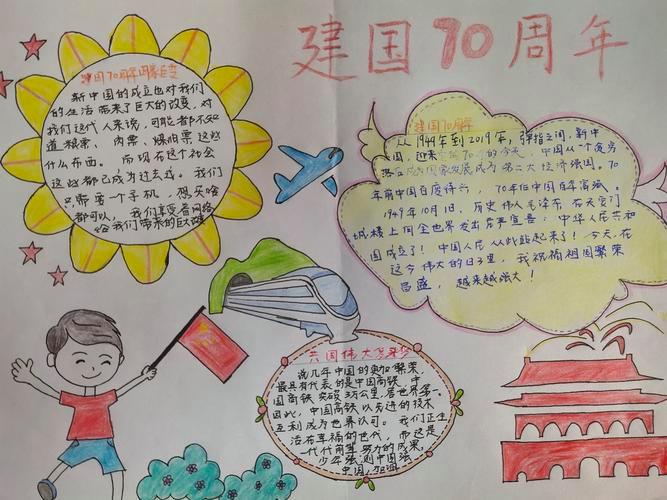 建国70周年
建国70周年国家巨变
新中国的成立也对我们
的生活带来了巨大的改变,对
我们这代人来说,可能都不知
道粮票、肉票、煤油票这些
什么东西。而现在这个社会
这些都已成为过去式。我们
只带要一个手机,想买啥
都可以,我们享受着网络
给我们带来的巨大改变
建国70周年
从1949年到2019年,弹指之间,新中
国,迎来 70 的今天,中国从一个贫穷
国家发展成为第二大经济强国。70
年前中国百废待兴,70年后中国百年富强。
1949年10月1日,历史伟人毛泽东在天安门
城楼上向全世界发出庄严宣告:中华人民共和
国成立了!中国人民从此站起来了!今天,在
这个伟大的日子里,我祝福祖国繁荣
昌盛,越来越强大!
共国伟大复兴梦
说几年中国的更加繁荣,
最具有代表的是中国高铁,中
国高铁突破3万公里,居世界第一。
因此,中国高铁以先进的技术
互利成为世界认可。我们正生
活在幸福的世代,而这是
一代代前辈努力的成果,
少年强则中国强
中国,加油